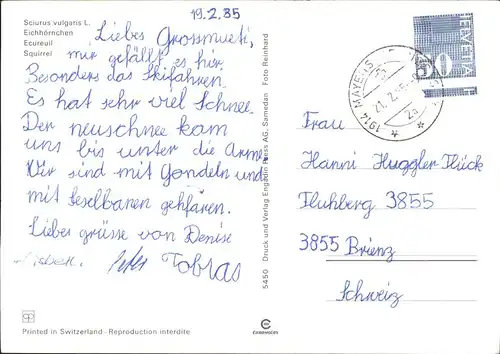 19.2.85
Sciurus vulgaris L.
Eichhörnchen
Ecureuil
Squirrel
Liebes Grossmueti,
mir gefällt es hir.
Besonders das Skifahren.
Es hat sehr viel Schnee.
Der neuschnee kam
uns bis unter die Arme.
Wir sind mit Gondeln und
mit Seselbanen gefharen.
Liebes grüsse von Denise
Tobias
Printed in Switzerland - Reproduction interdite
5450 Druck und Verlag Engadin Press AG, Samedan Foto Reinhard
HELVETIA
50
1914 MAYENS
21.2.85
Frau
Hanni Huggler-Flück
Fluhberg 3855
3855 Brienz
Schweiz